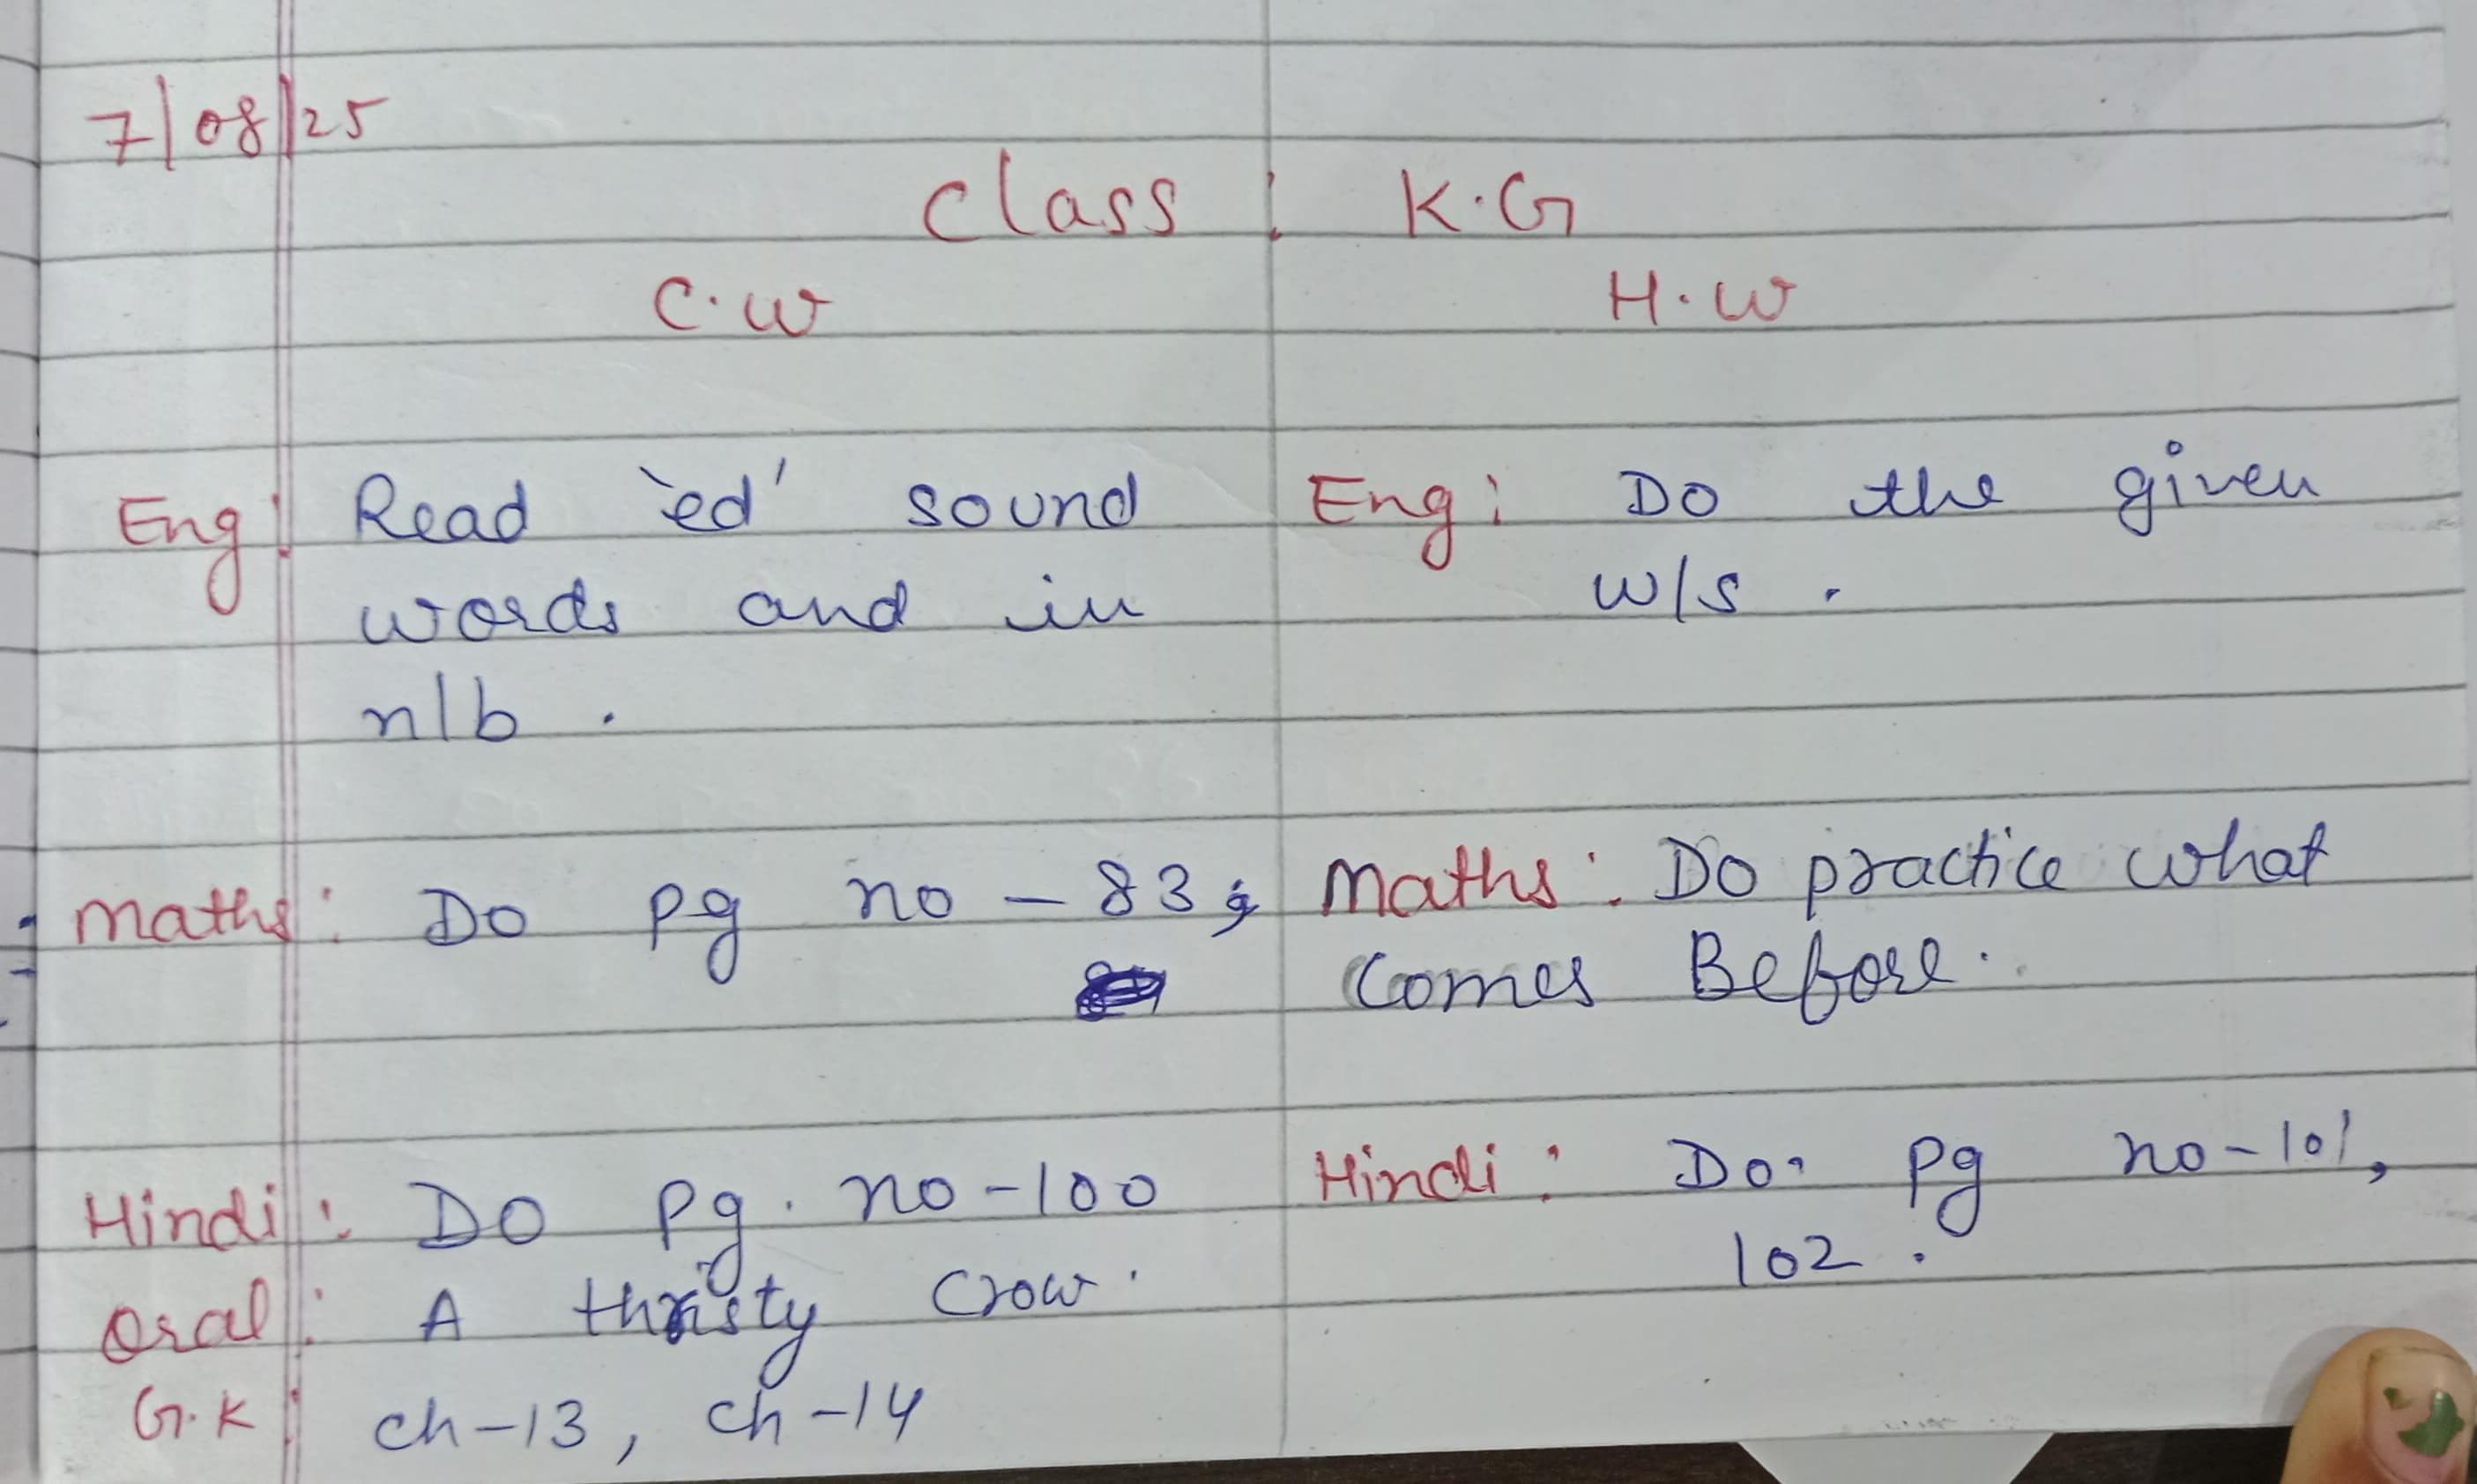 7/08/25
Class : K.G
C.W
H.W
Eng: Read 'ed' sound
words and in
n/b .
Maths: Do pg no - 83
Hindi: Do pg. no - 100
Oral: A thristy Crow.
G.K: ch-13, ch-14
Eng: Do the given
w/s .
Maths: Do practice what
Comes Before.
Hindi: Do. pg no - 101,
102 .